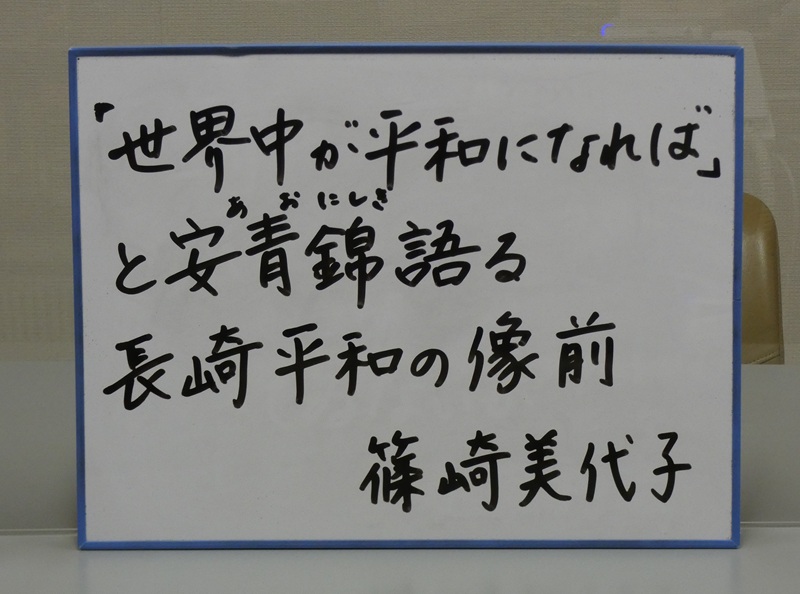 「世界中が平和になれば」
あおにしき
と安青錦語る
長崎平和の像前
篠崎美代子